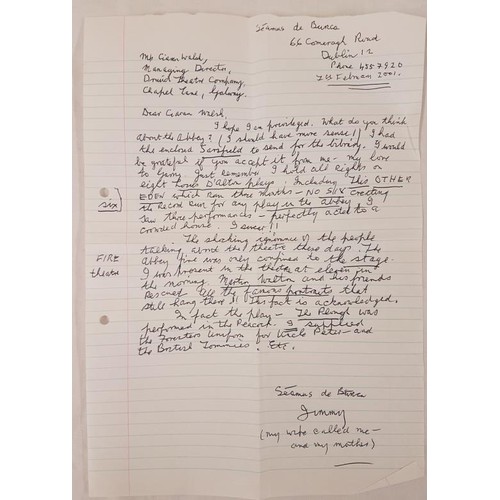 Séamas de Búrca
66 Comeragh Road
Dublin 12
Phone 4557920
Mr Ciaran Walsh,
Managing Director,
Druid Theatre Company,
Chapel Lane, Galway.
Dear Ciaran Walsh,
I hope I am privileged. What do you think
about the Abbey? (I should have more sense!! I had
the enclosed to send for the library. I would
be grateful if you accept it from me - my love
to Garry. Just remember I hold all rights on
eight Louis D'Alton plays. Including This OTHER
EDEN which ran three months - NO SIX creating
the record run for any play in the Abbey. I
six
saw three performances - perfectly acted to a
crowded house. I swear!!
The shocking ignorance of the people
talking about the theatre these days. The
FIRE
theatre
Abbey fire was only confined to the stage.
I was present in the theatre at eleven in
the morning. Martin Walton and his friends
rescued all the famous portraits that
still hang there!! This fact is acknowledged.
In fact the play - The Plough was
performed in the Peacock. I supplied
the Foresters Uniform for Uncle Peter - and
the British Tommies. Etc.
Séamas de Búrca
Jimmy
(my wife called me -
and my mother)